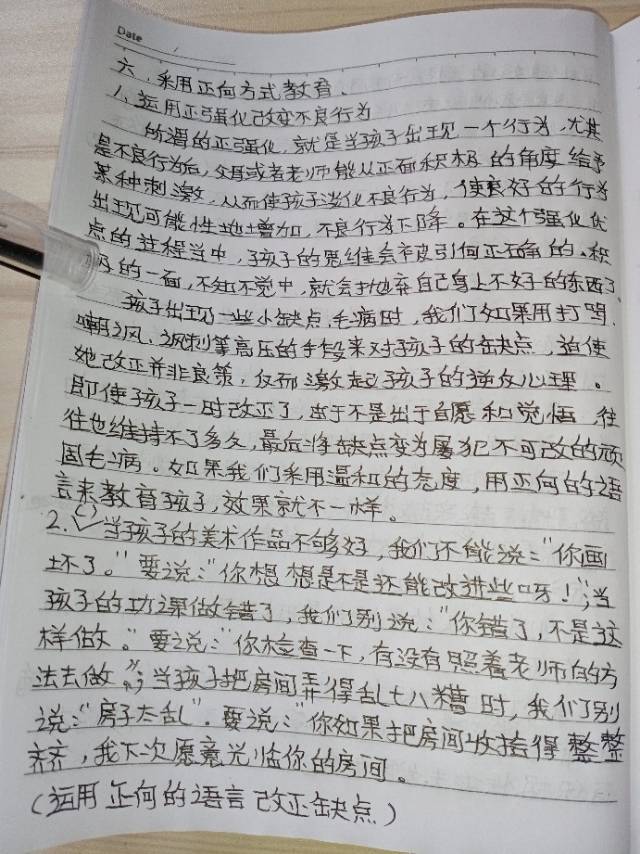 Date /
六、采用正向方式教育、
1、运用正强化改变不良行为
所谓的正强化,就是当孩子出现一个行为,尤其
是不良行为后,父母或者老师能从正面积极的角度给予
某种刺激,从而使孩子淡化不良行为,使良好的行为
出现可能性地增加,不良行为下降。在这个强化优
点的过程当中,孩子的思维会被引向正确的、积
极的一面,不知不觉中,就会抛弃自己身上不好的东西了。
孩子出现一些小缺点、毛病时,我们如果用打骂、
嘲讽、讽刺等高压的手段来对孩子的缺点,迫使
她改正并非良策,反而激起孩子的逆反心理。
即使孩子一时改正了,由于不是出于自愿和觉悟,往
往也维持不了多久,最后将缺点变为屡犯不可改的顽
固毛病。如果我们采用温和的态度,用正向的语
言来教育孩子,效果就不一样。
2.()✓当孩子的美术作品不够好,我们不能说:"你画
坏了。"要说:"你想想是不是还能改进些呀!";当
孩子的功课做错了,我们别说:"你错了,不是这
样做。"要说:"你检查一下,有没有照着老师的方
法去做";当孩子把房间弄得乱七八糟时,我们别
说:"房子太乱".要说:"你如果把房间收拾得整整
齐齐,我下次愿意光临你的房间。
(运用正向的语言改正缺点)